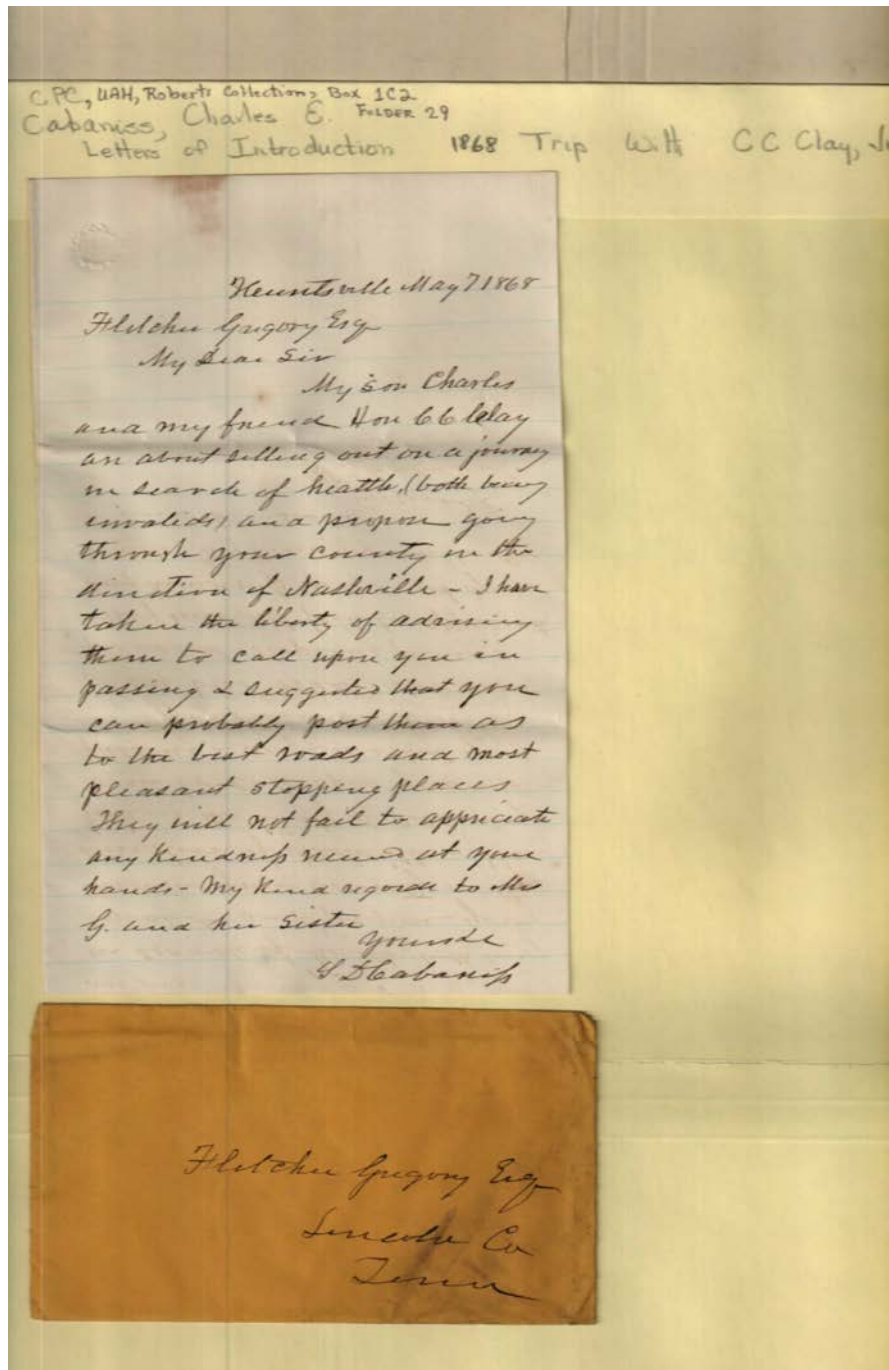 CPC, UAH, Roberts Collection, Box 1C2
Cabaniss, Charles E. Folder 29
Letters of Introduction 1868 Trip With CC Clay, J
Huntsville May 7 1868
Fletcher Gregory Esq
My Dear Sir
My son Charles
and my friend Hon C C Clay
are about setting out on a journey
in search of health, (both being
invalids) and propose going
through your county in the
direction of Nashville - I have
taken the liberty of advising
them to call upon you in
passing & suggested that you
can probably post them as
to the best roads and most
pleasant stopping places
They will not fail to appreciate
any kindness received at your
hands - My kind regards to Mrs
G. and her sister
Yours &c
S D Cabaniss
Fletcher Gregory Esq
Lincoln Co
Tenn